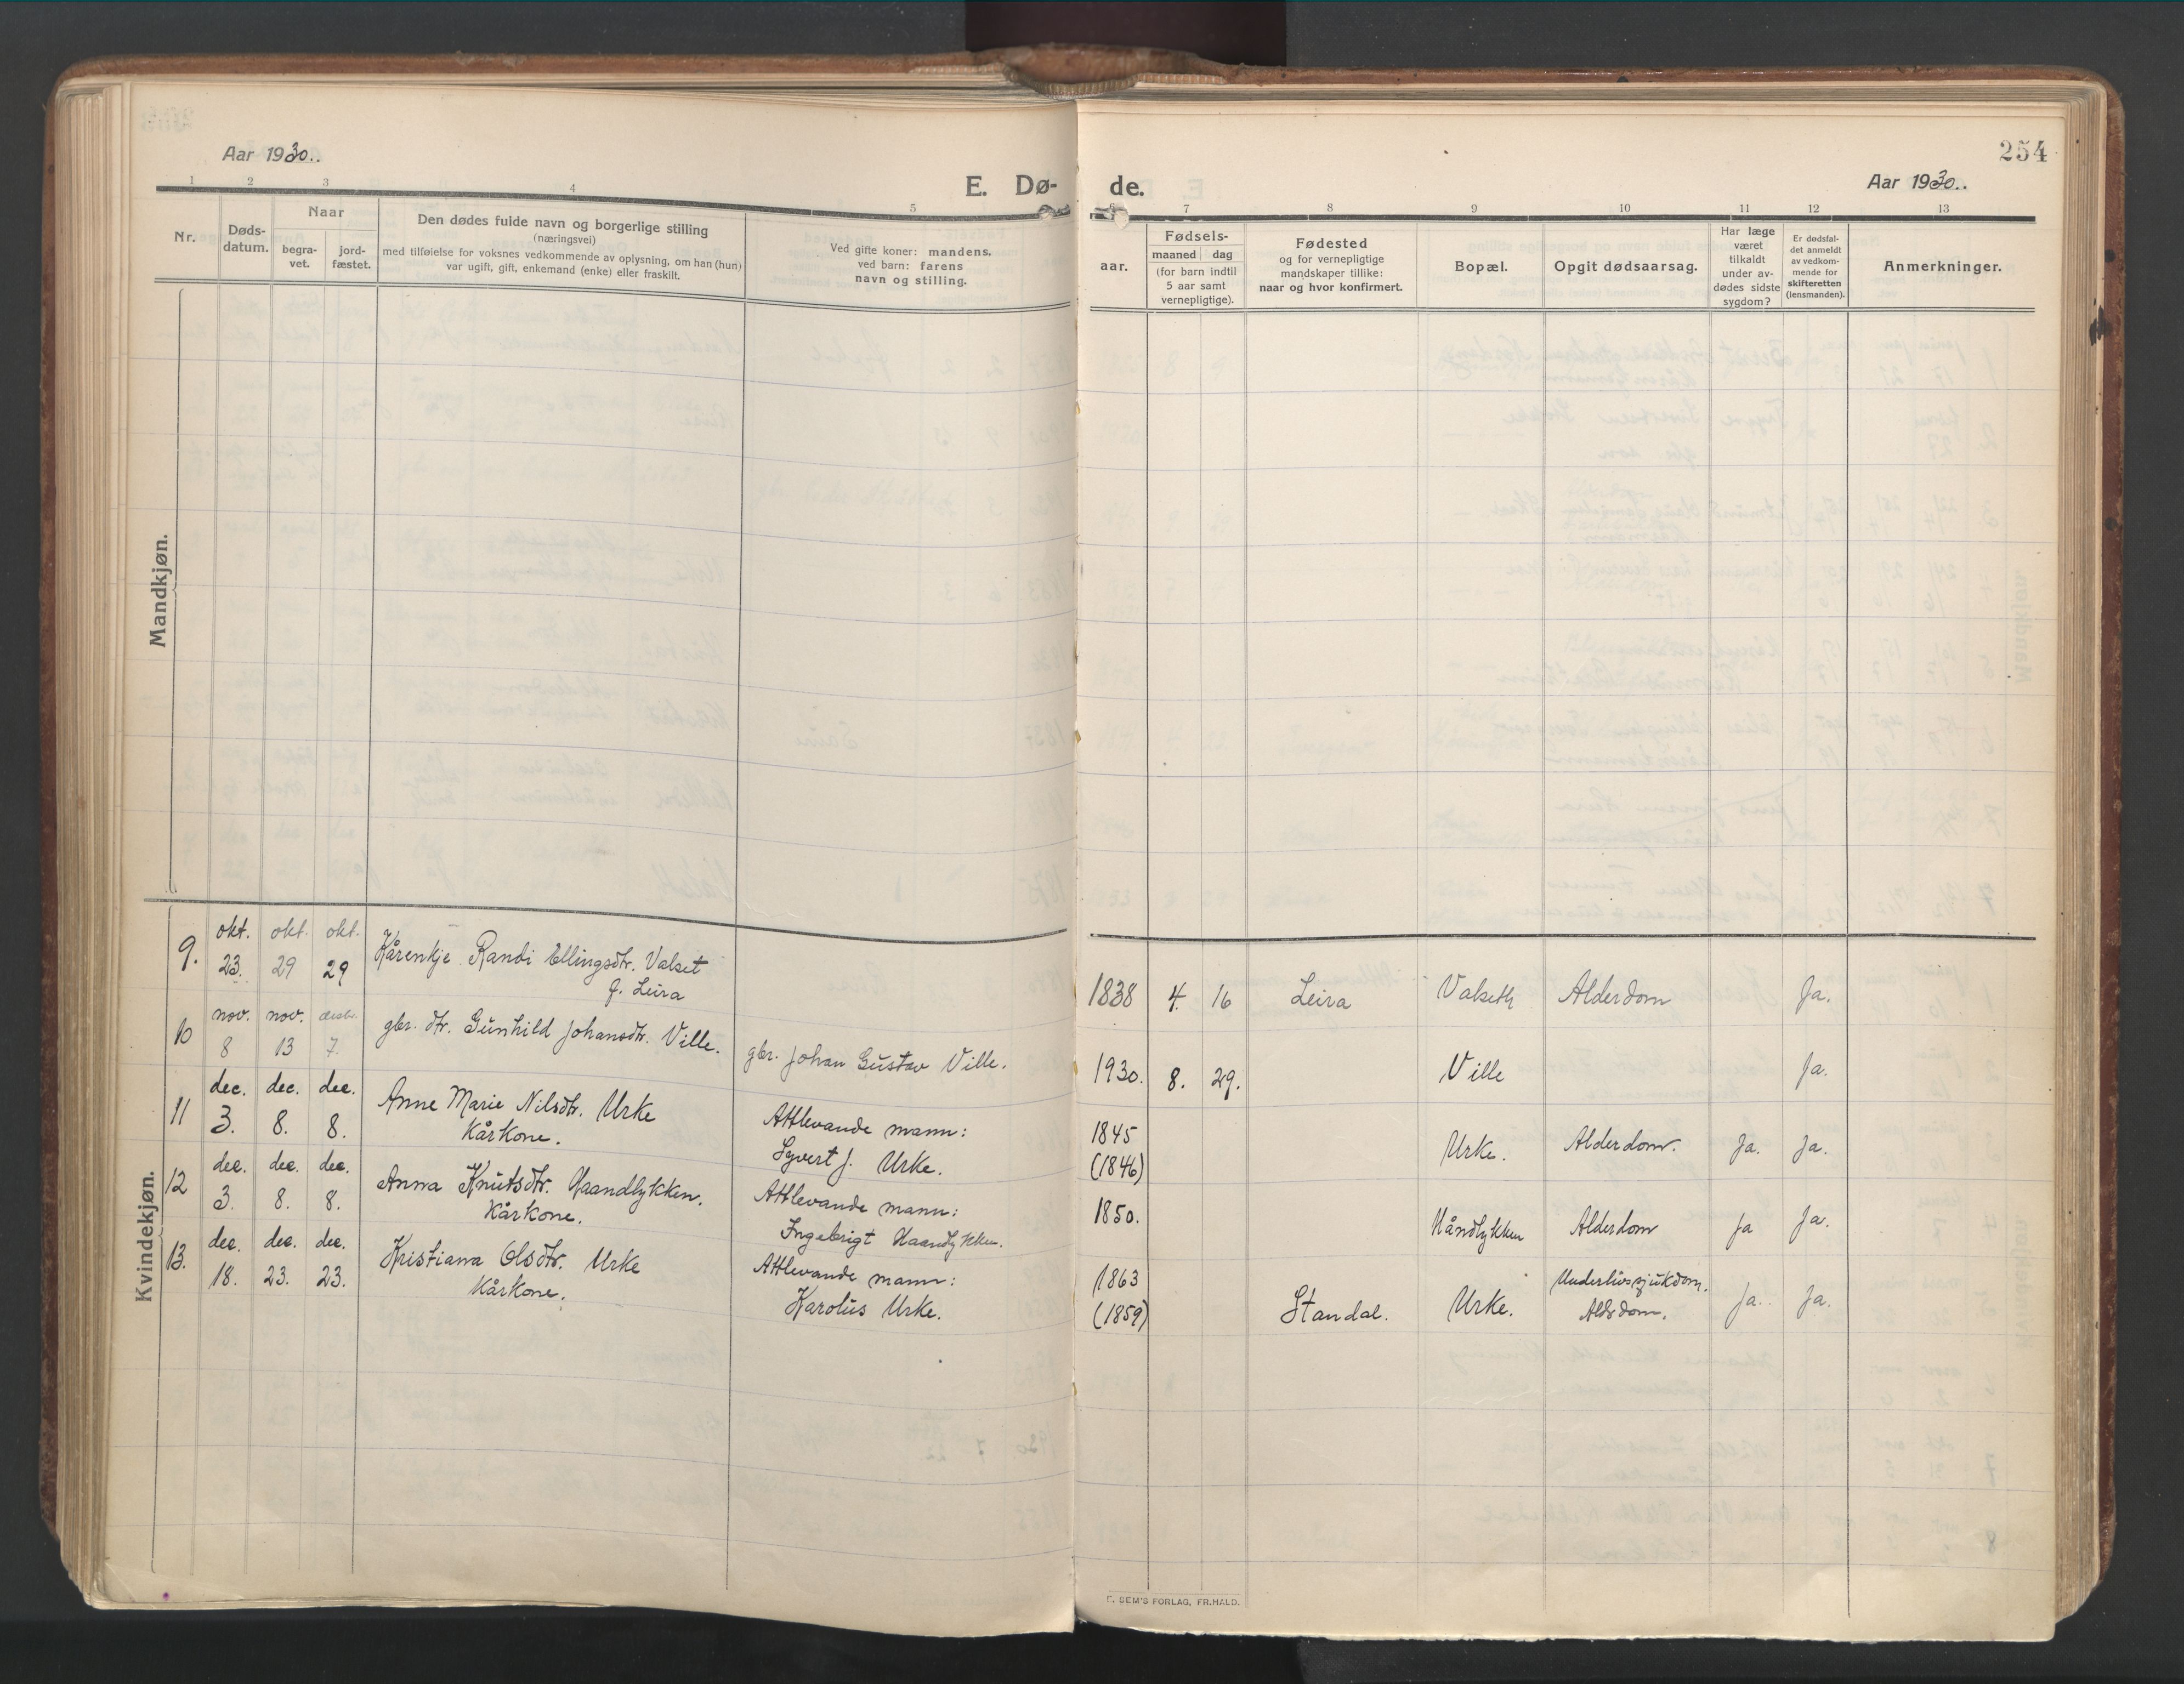 254
Aar 1930.. E. Dø- de. Aar 1930..
1 2 3 4 5 6 7 8 9 10 11 12 13
Nr.
Døds-
datum.
Naar
begra-
vet.
jord-
fæstet.
Den dødes fulde navn og borgerlige stilling
(næringsvei)
med tilføielse for voksnes vedkommende av oplysning, om han (hun)
var ugift, gift, enkemand (enke) eller fraskilt.
Ved gifte koner: mandens,
ved barn: farens
navn og stilling.
aar.
Fødsels-
maaned dag
(for barn indtil
5 aar samt
vernepligtige).
Fødested
og for vernepligtige
mandskaper tillike:
naar og hvor konfirmert.
Bopæl.
Opgit dødsaarsag.
Har læge
været
tilkaldt
under av-
dødes sidste
sygdom?
Er dødsfal-
det anmeldt
av vedkom-
mende for
skifteretten
(lensmanden).
Anmerkninger.
Mandkjøn.
Kvindekjøn.
okt. okt. okt.
9. 23. 29 29 Kårenkje Randi Ellingsdtr. Valset 1838 4. 16 Leira Valseth Alderdom Ja.
f. Leira
nov. nov. desbr.
10 8 13 7. gbr. dtr. Gunhild Johansdtr. Ville. gbr. Johan Gustav Ville. 1930. 8. 29. Ville Ja.
dec. dec. dec.
11 3. 8. 8. Anne Marie Nilsdtr. Urke Attlevande mann: 1845 Urke. Alderdom. Ja. Ja.
Kårkone. Syvert J. Urke. (1846)
dec. dec. dec.
12 3. 8. 8. Anna Knutsdtr. Haandlykken. Attlevande mann: 1850. Håndlykken Alderdom Ja Ja.
Kårkone. Ingebrigt Haandlykken.
dec. dec. dec.
13. 18. 23. 23. Kristiana Olsdtr. Urke Attlevande mann: 1863 Standal. Urke. Underlivssjukdom. Ja.. Ja.
Kårkone. Karolus Urke. (1859) Aldrdom.
F. BEM'S FORLAG, FR.HALD.